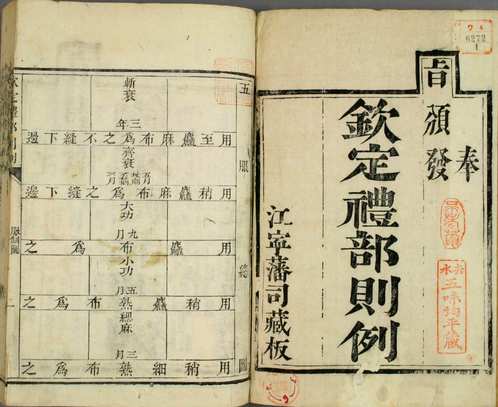 奉
旨頒發
欽定禮部則例
江寧藩司藏板
6272
1
五味均平藏
五服總圖
斬衰 三年
用至麤麻布為之不縫下邊
齊衰
用稍麤麻布為之縫下邊
大功 九月
用麤布為之
小功 五月
用稍麤熟布為之
緦麻 三月
用稍細熟布為之